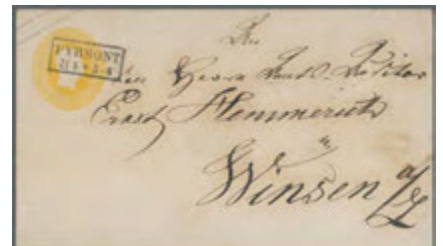 PYRMONT
An
Den Herrn
Ernst Hemmerich
in
Winsen a/L